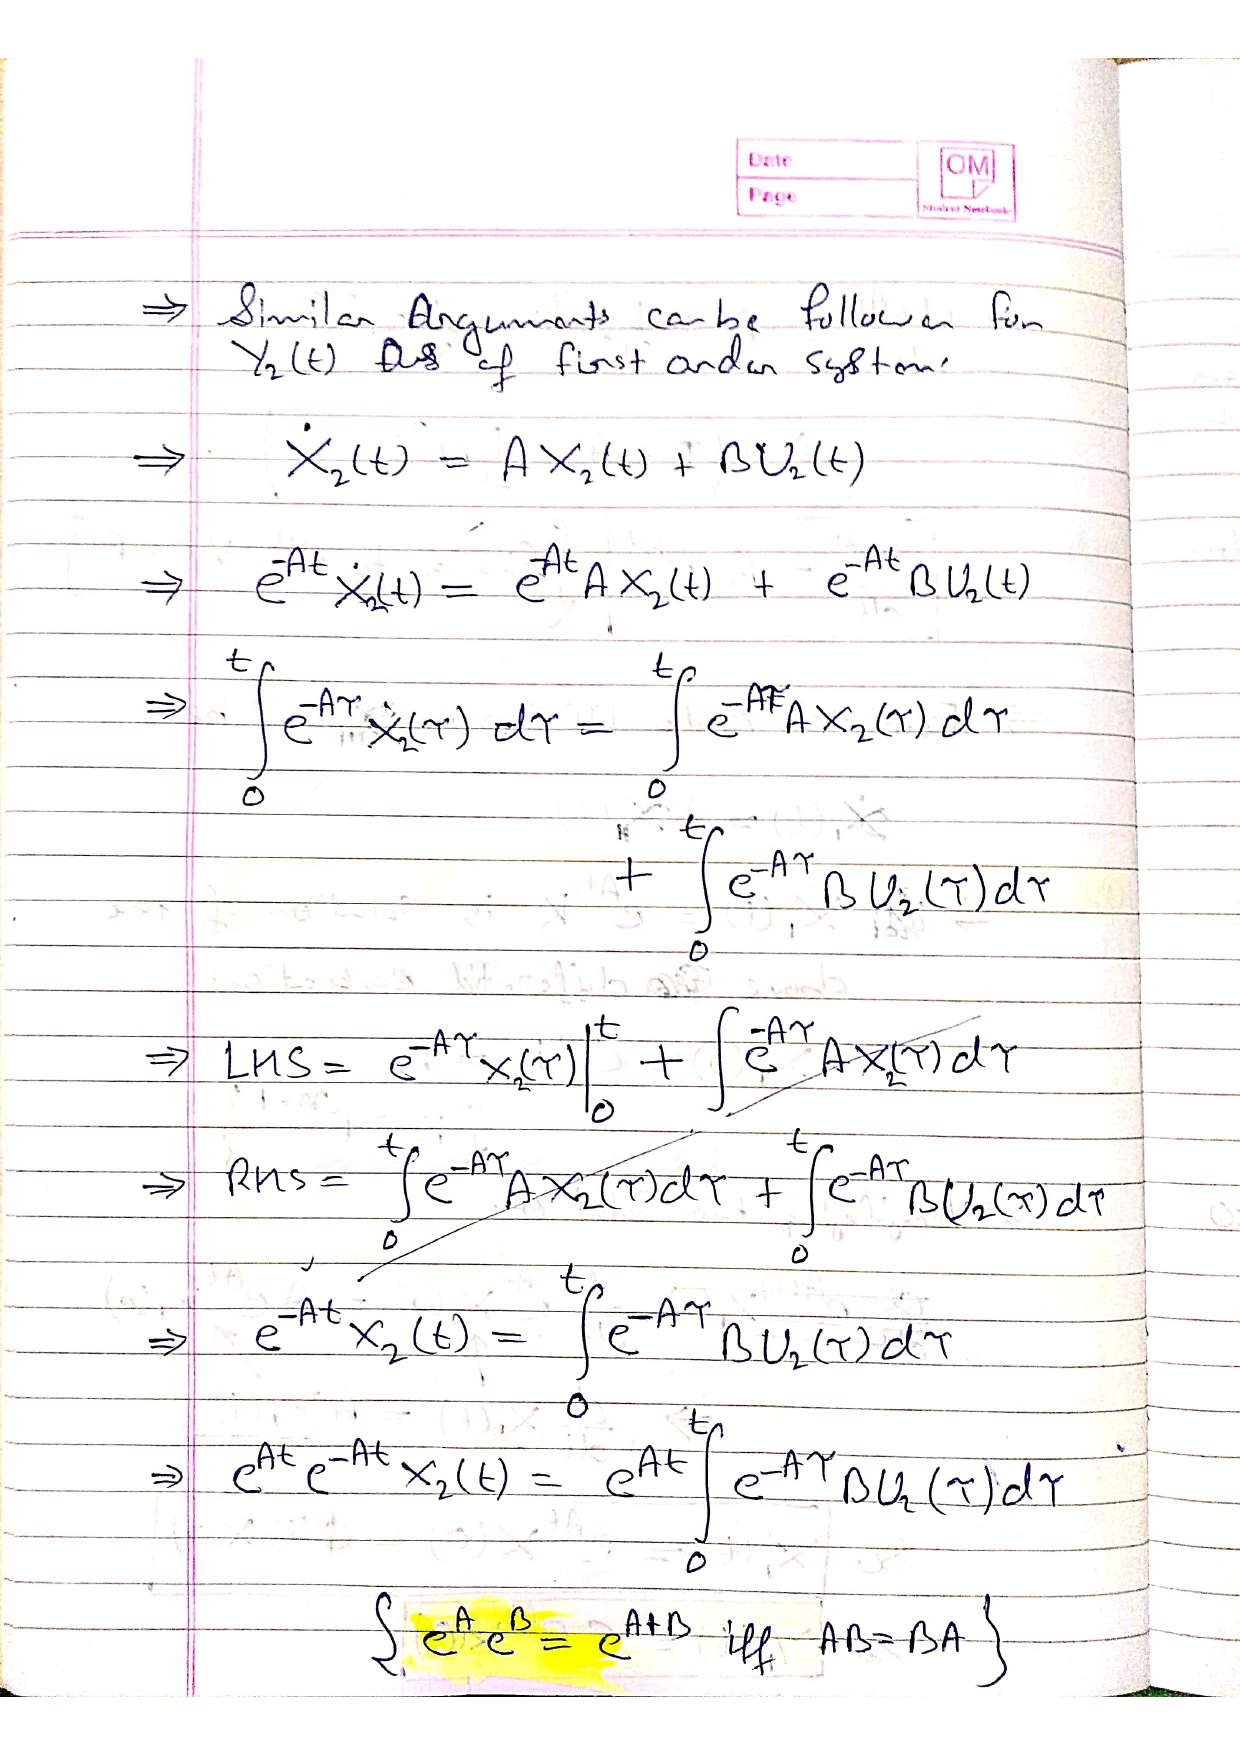 Date
OM
Page
Student Notebook
⇒ Similar Arguments can be followen for
Y₂(t) as of first order system.
⇒ Ẋ₂(t) = AX₂(t) + BU₂(t)
⇒ e^{-At} Ẋ₂(t) = e^{-At} A X₂(t) + e^{-At} B U₂(t)
⇒ ∫₀ᵗ e^{-Aτ} Ẋ₂(τ) dτ = ∫₀ᵗ e^{-Aτ} A X₂(τ) dτ
+ ∫₀ᵗ e^{-Aτ} B U₂(τ) dτ
⇒ LHS = e^{-Aτ} X₂(τ)|₀ᵗ + ∫ e^{-Aτ} A X₂(τ) dτ
⇒ RHS = ∫₀ᵗ e^{-Aτ} A X₂(τ) dτ + ∫₀ᵗ e^{-Aτ} B U₂(τ) dτ
⇒ e^{-At} X₂(t) = ∫₀ᵗ e^{-Aτ} B U₂(τ) dτ
⇒ e^{At} e^{-At} X₂(t) = e^{At} ∫₀ᵗ e^{-Aτ} B U₂(τ) dτ
{ e^A e^B = e^{A+B} iff AB = BA }